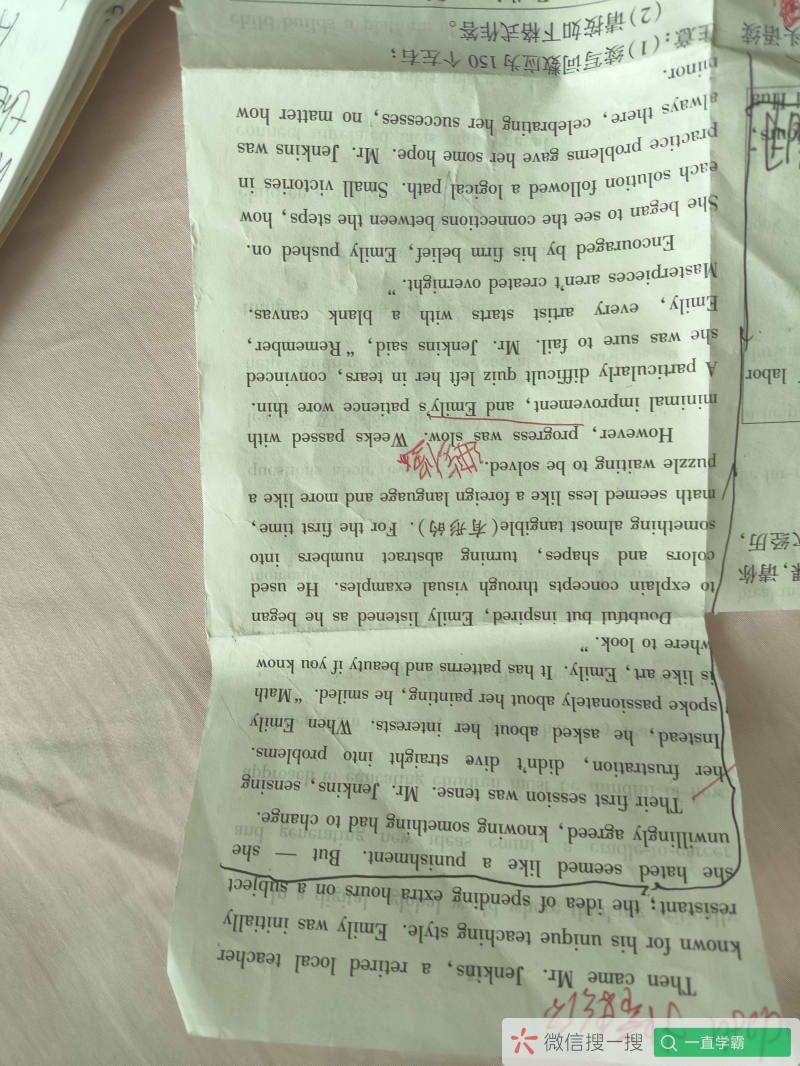 Then came Mr. Jenkins, a retired local teacher
known for his unique teaching style. Emily was initially
resistant; the idea of spending extra hours on a subject
she hated seemed like a punishment. But — she
unwillingly agreed, knowing something had to change.
Their first session was tense. Mr. Jenkins, sensing
her frustration, didn't dive straight into problems.
Instead, he asked about her interests. When Emily
spoke passionately about her painting, he smiled. "Math
is like art, Emily. It has patterns and beauty if you know
where to look."
Doubtful but inspired, Emily listened as he began
to explain concepts through visual examples. He used
colors and shapes, turning abstract numbers into
something almost tangible(有形的). For the first time,
math seemed less like a foreign language and more like a
puzzle waiting to be solved.
However, progress was slow. Weeks passed with
minimal improvement, and Emily's patience wore thin.
A particularly difficult quiz left her in tears, convinced
she was sure to fail. Mr. Jenkins said, "Remember,
Emily, every artist starts with a blank canvas.
Masterpieces aren't created overnight."
Encouraged by his firm belief, Emily pushed on.
She began to see the connections between the steps, how
each solution followed a logical path. Small victories in
practice problems gave her some hope. Mr. Jenkins was
always there, celebrating her successes, no matter how
minor.
注意：(1)续写词数应为 150 个左右；
(2)请按如下格式作答。
头语续
labor
经历，
果，请你
微信搜一搜
一直学霸